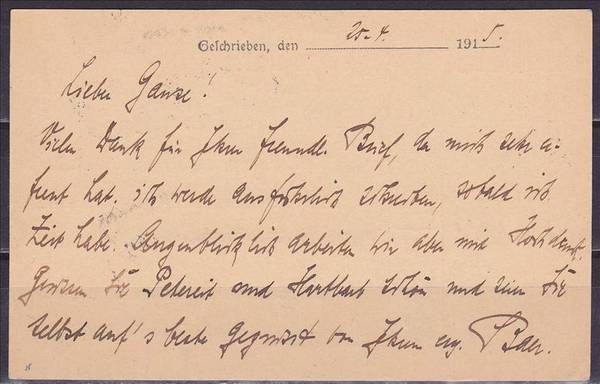 Geschrieben, den 20.4. 1915.
Lieber Ganse!
Vielen Dank für Ihren freundl. Brief, der mich sehr er-
freut hat. Ich werde ausführlich schreiben, sobald ich
Zeit habe. Augenblicklich arbeiten wir aber mit Hochdruck.
Sie Petereit und Hartbart schön und seien Sie
selbst auf's beste gegrüsst von Ihrem